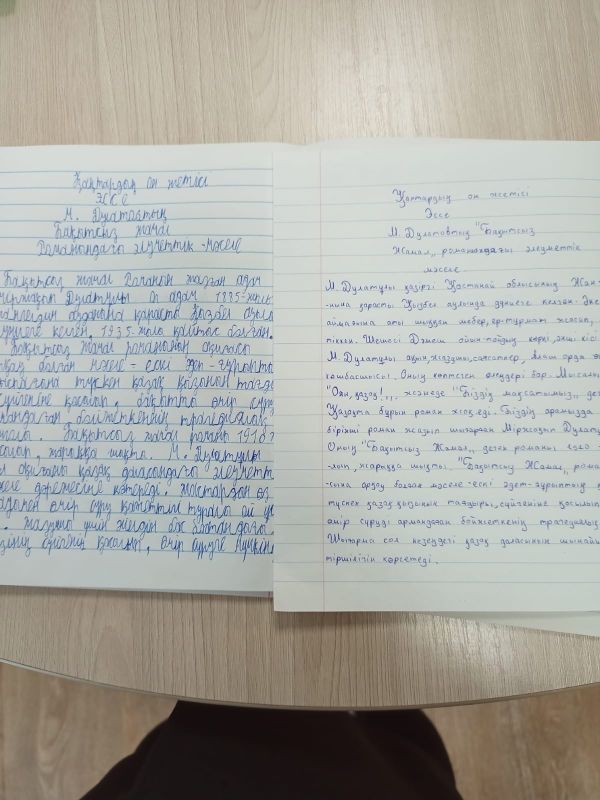 Қаңтардың он жетісі
ЭССЕ
М. Дулатовтың
Бақытсыз жамал
Романындағы әлеуметтік-мәселе
Бақытсыз жамал романын жазған адам
Дулатұлы ол адам 1885-жылы
ауданына қарасты Қызбел ауыл
дүниеге келген. 1935-жылы қайтыс болған.
Бақытсыз жамал романының оқиғасы
болған мәселе - ескі әдет-ғұрыптың
түскен қазақ қызының тағды
сүйгеніне қосылып, бақытты өмір сүру
армандаған бойжеткеннің трагедиялық
Бақытсыз жамал романы 1910
жарыққа шықты. М. Дулатұлы
оқиғаны қазақ даласындағы әлеуметті
дәрежесіне көтереді. Жастардың өз
өмір сүру қажеттілігі туралы ой
үшін жеңдің бас бостандығы
сүйгеніне қосылып, өмір сүруге
Қаңтардың он жетісі
Эссе
М. Дулатовтың "Бақытсыз
Жамал,, романындағы әлеуметтік
мәселе
М. Дулатұлы қазіргі Қостанай облысының Жан-
-нына қарасты Қызбел ауылында дүниеге келген. Әке
аймағына аты шыққан шебер, ер-тұрмат жасап,
тіккен. Шешесі Дәмеш ойын-тойдың көркі, әнші кісі
М. Дулатұлы ақын, жазушы, саясаткер, Алаш орда
көшбасшысы. Оның көптеген өлеңдері бар. Мысалы
"Оян, қазақ!,, және "Біздің мақсатымыз,, де
Қазақта бұрын роман жоқ еді. Біздің арамызда
бірінші роман жазып шығарған Міржақып Дулату
Оның "Бақытсыз Жамал,, деген романы 1910-
-лып, жарыққа шықты. "Бақытсыз Жамал,, рома
-сына арқау болған мәселе - ескі әдет-ғұрыптың
түскен қазақ қызының тағдыры, сүйгеніне қосылып
өмір сүруді армандаған бойжеткеннің трагедиялық
Шығарма сол кезеңдегі қазақ даласының шынайы
тіршілігін көрсетеді.